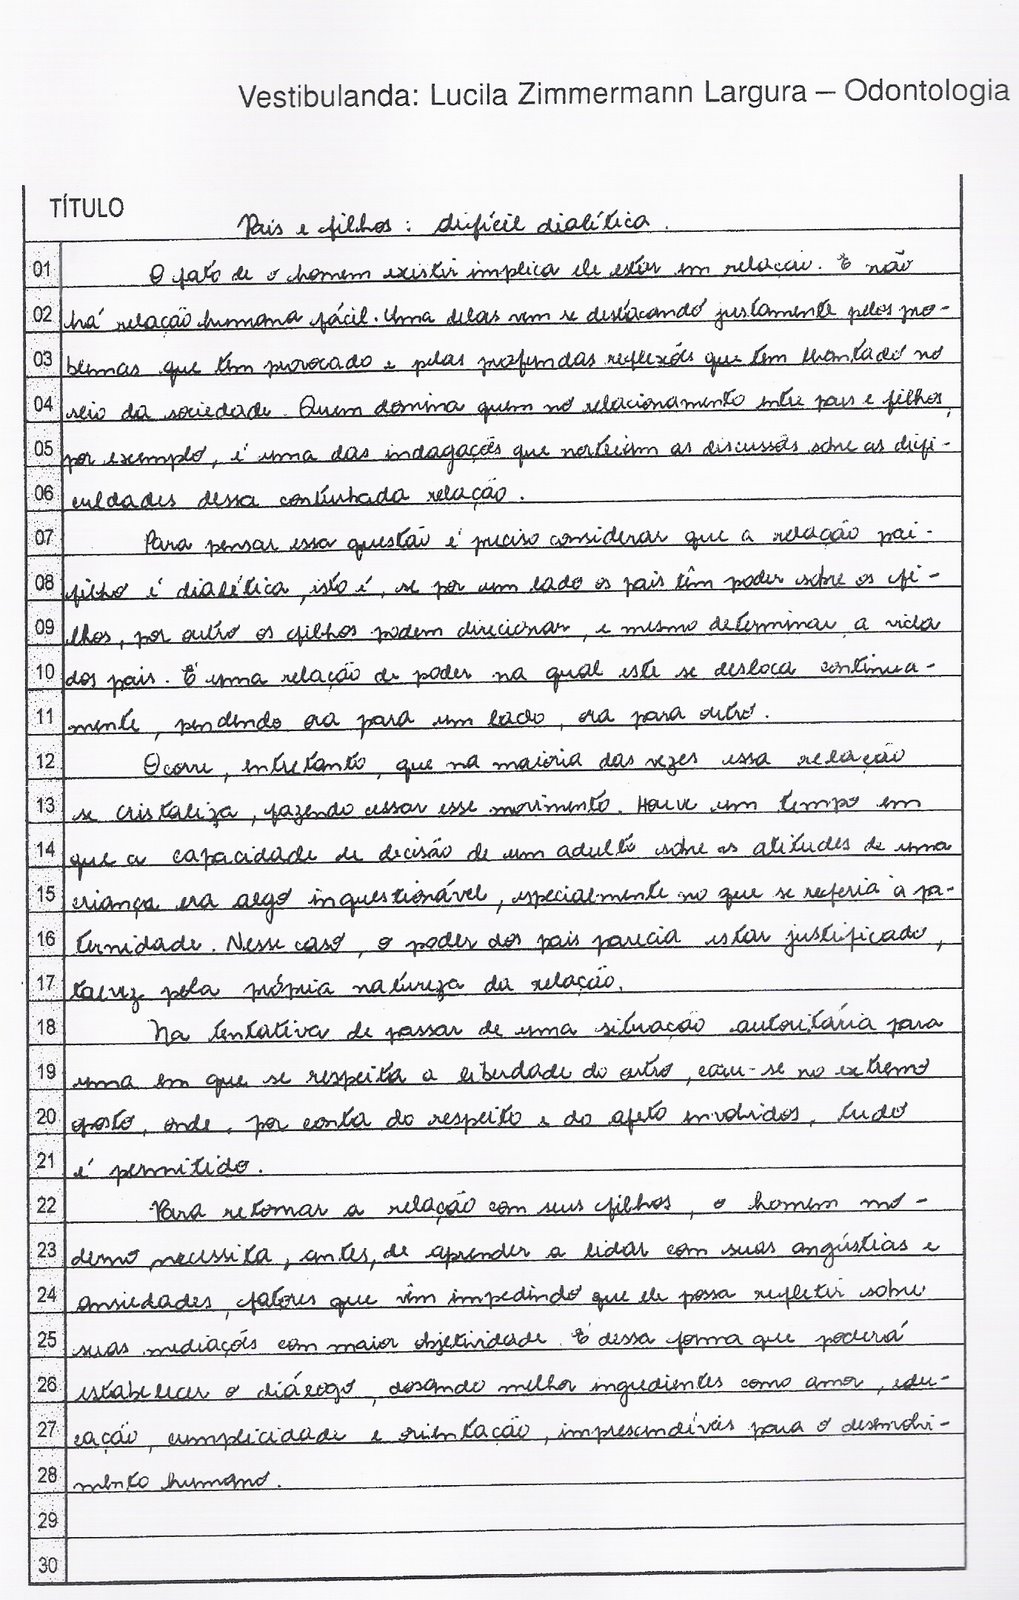 Vestibulanda: Lucila Zimmermann Largura – Odontologia
TÍTULO
Pais e filhos: difícil dialética.
01 O fato de o homem existir implica ele estar em relação. E não
02 há relação humana fácil. Uma delas vem se destacando justamente pelos pro-
03 blemas que tem provocado e pelas profundas reflexões que tem levantado no
04 seio da sociedade. Quem domina quem no relacionamento entre pais e filhos,
05 por exemplo, é uma das indagações que norteiam as discussões sobre as difi-
06 culdades dessa conturbada relação.
07 Para pensar essa questão é preciso considerar que a relação pai-
08 filho é dialética, isto é, se por um lado os pais têm poder sobre os fi-
09 lhos, por outro os filhos podem direcionar, e mesmo determinar, a vida
10 dos pais. É uma relação de poder na qual este se desloca continua-
11 mente, pendendo ora para um lado, ora para outro.
12 Ocorre, entretanto, que na maioria das vezes essa relação
13 se cristaliza, fazendo cessar esse movimento. Houve um tempo em
14 que a capacidade de decisão de um adulto sobre as atitudes de uma
15 criança era algo inquestionável, especialmente no que se referia à pa-
16 ternidade. Nesse caso, o poder dos pais parecia estar justificado,
17 talvez pela própria natureza da relação.
18 Na tentativa de passar de uma situação autoritária para
19 uma em que se respeita a liberdade do outro, caiu-se no extremo
20 oposto, onde, por conta do respeito e do afeto envolvidos, tudo
21 é permitido.
22 Para retomar a relação com seus filhos, o homem mo-
23 derno necessita, antes, de aprender a lidar com suas angústias e
24 ansiedades, fatores que vêm impedindo que ele possa refletir sobre
25 suas mediações com maior objetividade. É dessa forma que poderá
26 estabelecer o diálogo, dosando melhor ingredientes como amor, edu-
27 cação, cumplicidade e orientação, imprescindíveis para o desenvolvi-
28 mento humano.
29
30